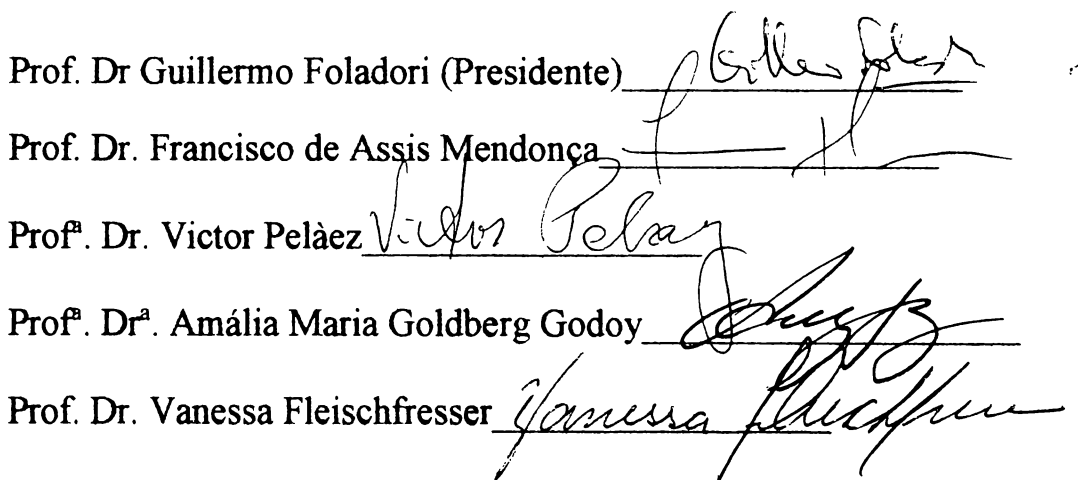 Prof. Dr Guillermo Foladori (Presidente)
Prof. Dr. Francisco de Assis Mendonça
Profª. Dr. Victor Pelàez Victor Pelaez
Profª. Drª. Amália Maria Goldberg Godoy
Prof. Dr. Vanessa Fleischfresser Vanessa